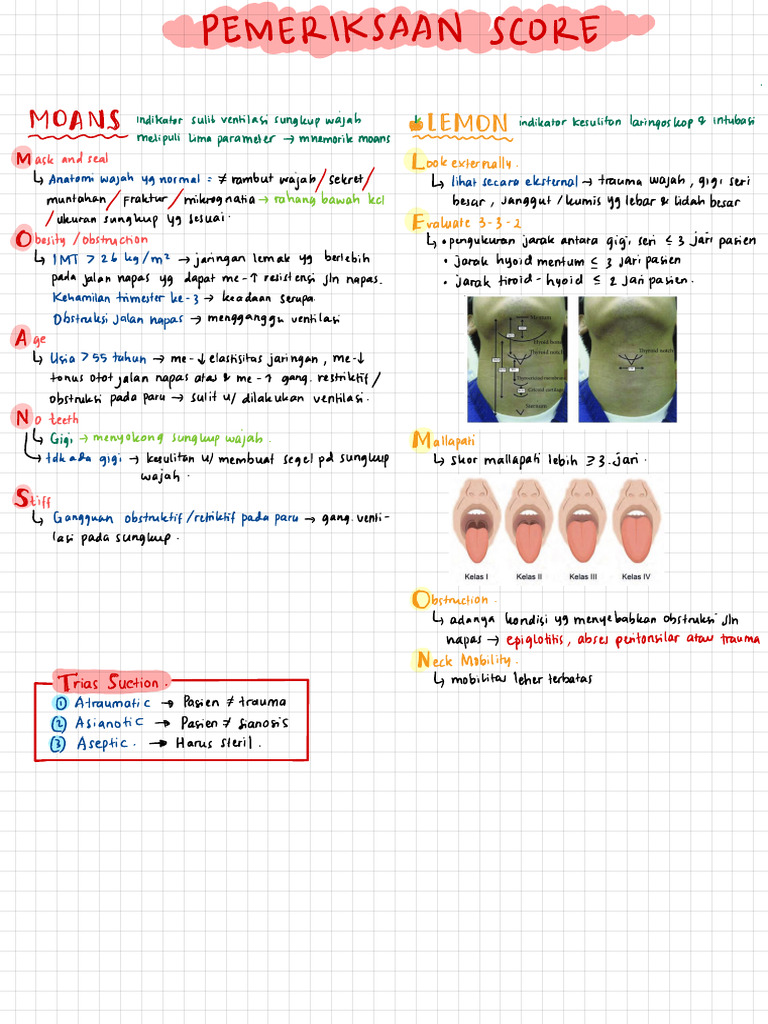 PEMERIKSAAN SCORE
MOANS
indikator sulit ventilasi sungkup wajah
meliputi lima parameter → mnemorik moans
Mask and seal
↳ Anatomi wajah yg normal = ≠ rambut wajah / sekret /
muntahan / Fraktur / mikrognatia → rahang bawah kcl
/ ukuran sungkup yg sesuai.
Obesity / obstruction
↳ IMT > 26 kg/m² → jaringan lemak yg berlebih
pada jalan napas yg dapat me-↑ resistensi jln napas.
Kehamilan trimester ke-3 → keadaan serupa.
Obstruksi jalan napas → mengganggu ventilasi
Age
↳ Usia > 55 tahun → me-↓ elastisitas jaringan, me-↓
tonus otot jalan napas atas & me-↑ gang. restriktif /
obstruksi pada paru → sulit u/ dilakukan ventilasi.
No teeth
↳ Gigi → menyokong sungkup wajah.
↳ tdk ada gigi → kesulitan u/ membuat segel pd sungkup
wajah.
Stiff
↳ Gangguan obstruktif / retriktif pada paru → gang. venti-
lasi pada sungkup.
Trias Suction.
1 Atraumatic → Pasien ≠ trauma
2 Asianotic → Pasien ≠ sianosis
3 Aseptic. → Harus steril.
LEMON
indikator kesulitan laringoskop & intubasi
Look externally.
↳ lihat secara eksternal → trauma wajah, gigi seri
besar, janggut / kumis yg lebar & lidah besar
Evaluate 3-3-2
↳ • pengukuran jarak antara gigi seri ≤ 3 jari pasien
• jarak hyoid mentum ≤ 3 jari pasien
• jarak tiroid-hyoid ≤ 2 jari pasien.
Mentum
Hyoid bone
Thyroid notch
Thyrohyoid membrane
Cricoid cartilage
Sternum
Thyroid notch
Mallapati
↳ skor mallapati lebih ≥ 3 jari.
Kelas I
Kelas II
Kelas III
Kelas IV
Obstruction.
↳ adanya kondisi yg menyebabkan obstruksi jln
napas → epiglotitis, abses peritonsilar atau trauma
Neck Mobility.
↳ mobilitas leher terbatas